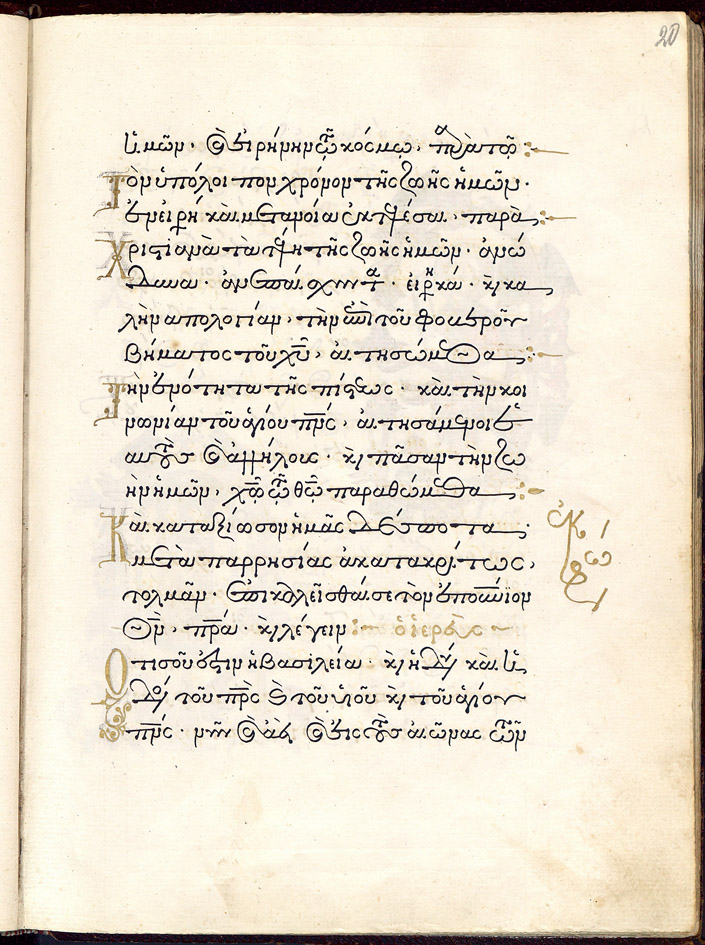 20
ἡμῶν, καὶ εἰρήνην τῷ κόσμῳ,
Τὸν ὑπόλοιπον χρόνον τῆς ζωῆς ἡμῶν·
ἐν εἰρή καὶ μετανοία ἐκτελέσαι, παρὰ
Χριστιανὰ τὰ τέλη τῆς ζωῆς ἡμῶν· ἀνώ
δυνα· ἀνεπαίσχυντα· εἰρηνικά· καὶ κα
λὴν ἀπολογίαν, τὴν ἐπὶ τοῦ φοβεροῦ
βήματος τοῦ χῦ, αἰτησώμεθα
Τὴν ἑνότητα τῆς πίστεως· καὶ τὴν κοι
νωνίαν τοῦ ἁγίου πν̅ς, αἰτησάμενοι ἑ
αυτοὺς καὶ ἀλλήλους· καὶ πᾶσαν τὴν ζω
ὴν ἡμῶν, χῶ τῶ θῶ παραθώμεθα
Καὶ καταξίωσον ἡμᾶς δέσποτα
μετὰ παρρησίας ἀκατακρίτως,
τολμᾶν· ἐπικαλεῖσθαί σε τὸν ἐπουνιον
θν̅, πρα̅· καὶ λέγειν: ὁ ἱερεὺς
Ὅτι σοῦ ἐστιν ἡ βασιλεία· καὶ ἡ δύ καὶ ἡ
δό τοῦ πρς̅ καὶ τοῦ υἱοῦ καὶ τοῦ ἁγίου
πν̅ς· νῦν καὶ ἀεὶ, καὶ εἰς τοὺς αἰῶνας τῶν